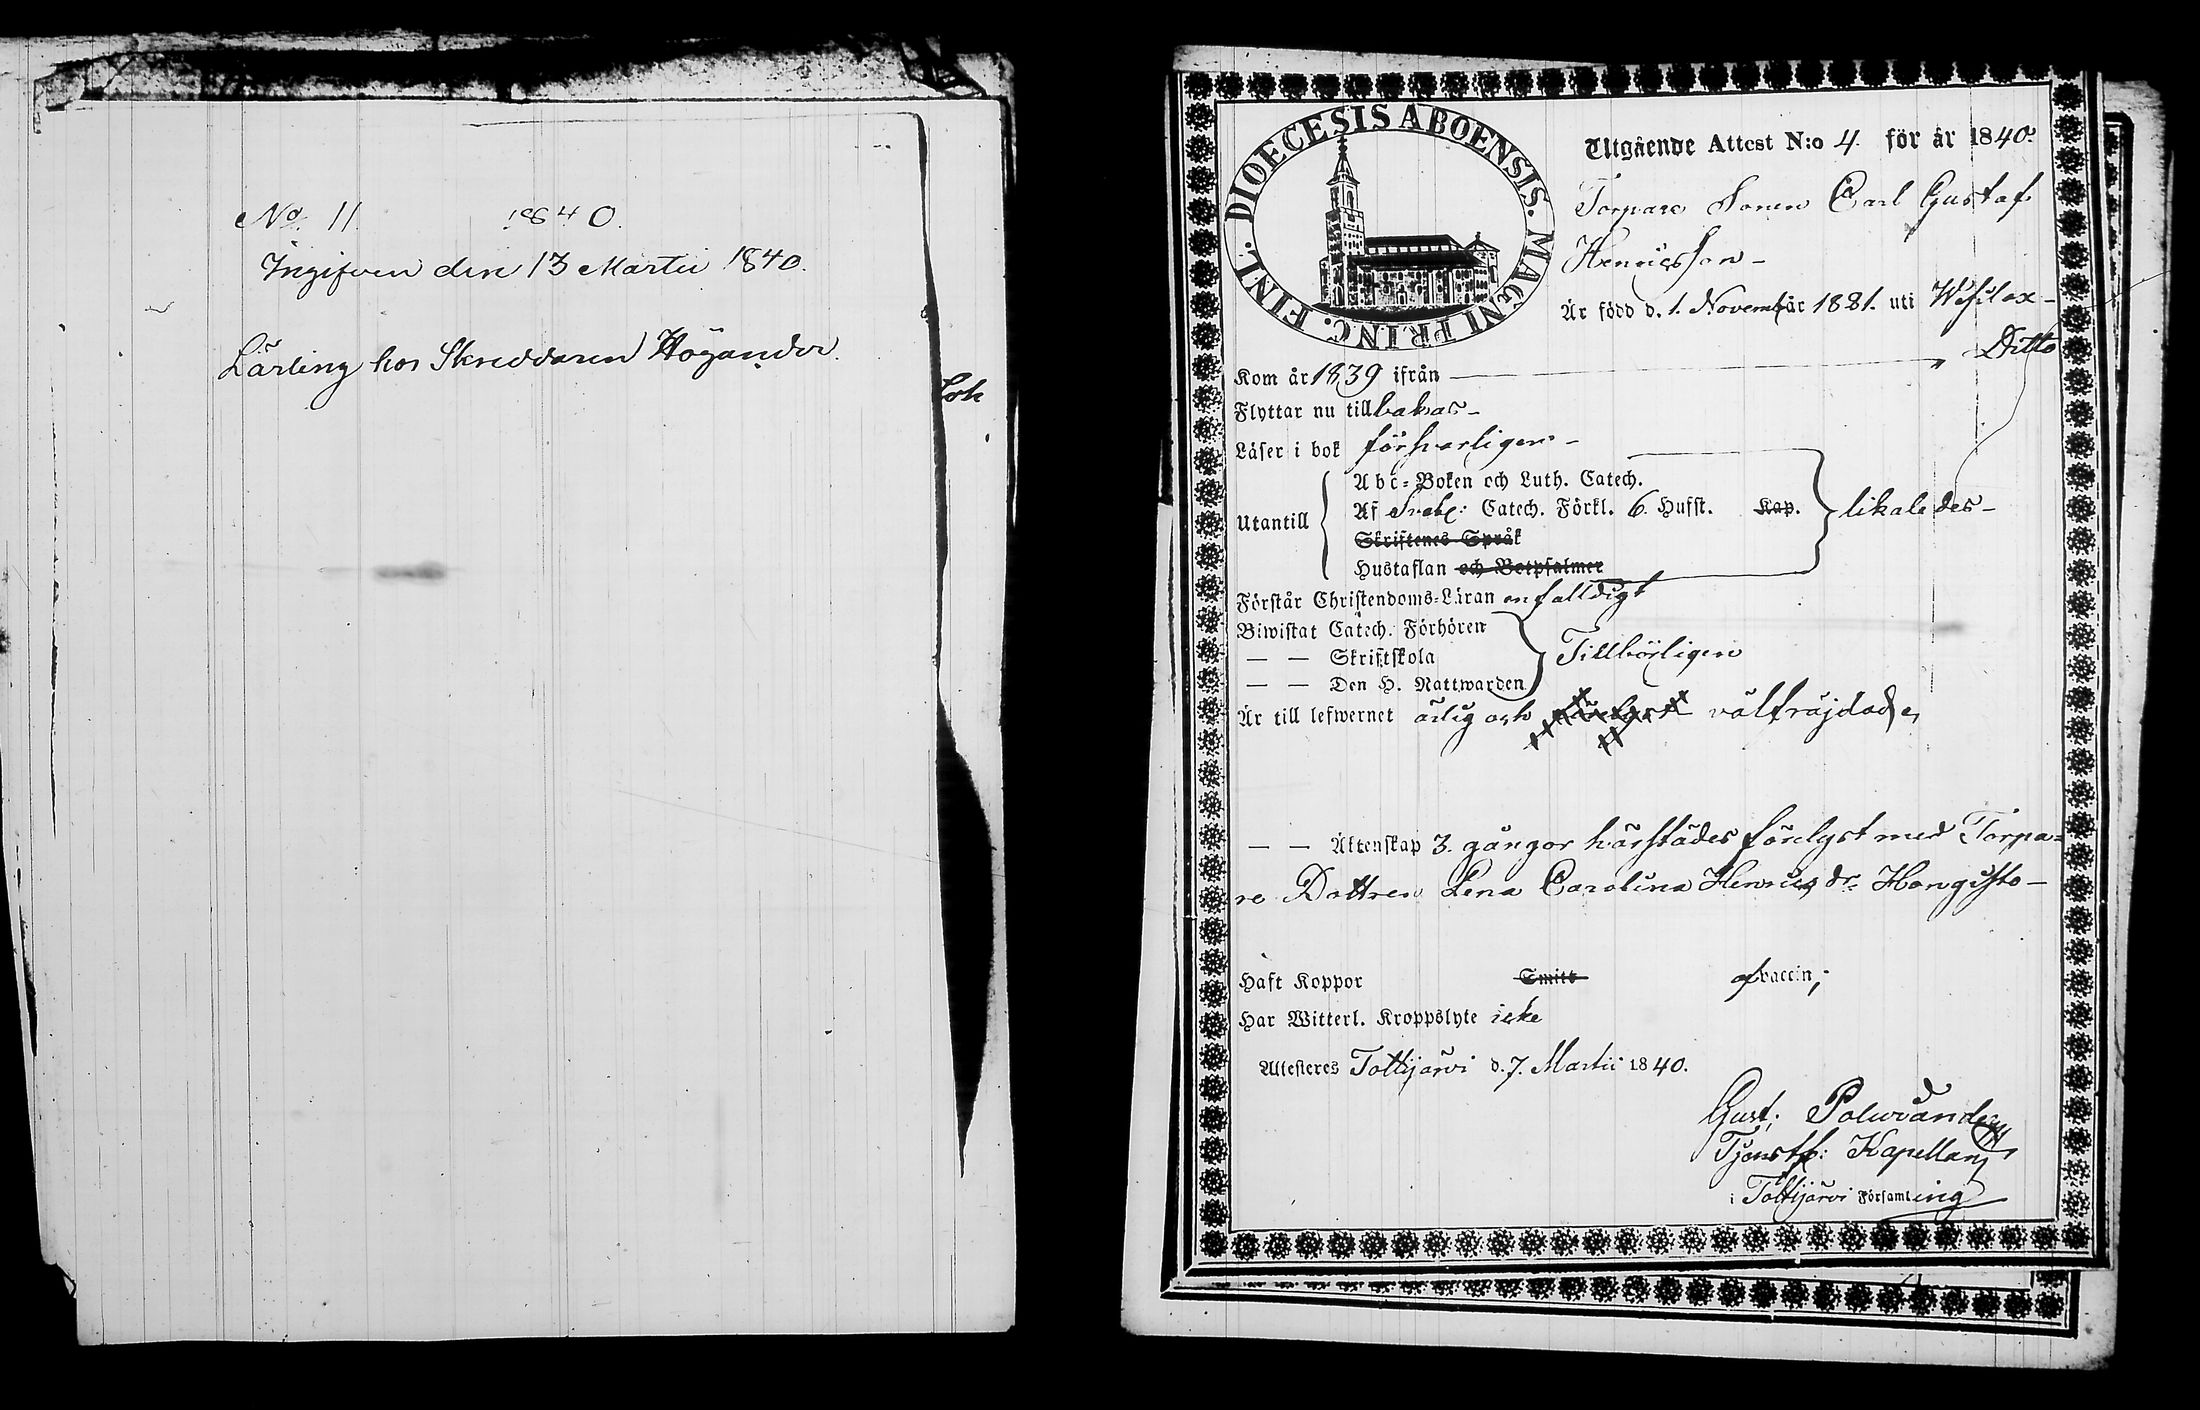 No. 11. 1840.
Ingifven den 13 Martii 1840.
Lärling hos Skreddaren Högander.
DIOECESIS ABOENSIS. MAGNI PRINC. FINL.
Utgående Attest N:o 4. för år 1840.
Torpare Sonen Carl Gustaf
Henricsson –
Är född d. 1. November 1821. uti Wesilax –
Kom år 1839 ifrån — Ditto
Flyttar nu tillbakas –
Läser i bok försvarligen –
Utantill
Abc-Boken och Luth. Catech.
Af Sveb: Catech. Förkl. 6. Hufst. Kap.
likaledes –
Skriftenes Språk
Hustaflan och Botpsalmer
Förstår Christendoms-Läran enfalldigt
Biwistat Catech. Förhören
— — Skriftskola
Tillbörligen
— — Den H. Nattwarden
Är till lefwernet ärlig och välfräjdad,
— — Äktenskap 3. gångor härstädes förelyst med Torpa-
re Dottren Lena Carolina Henricsdr. Hongisto –
Haft Koppor Smitt af vaccin,
Har Witterl. Kroppslyte icke
Attesteres Tottijärvi d. 7. Martii 1840.
Gust: Polviander
Tjenstf: Kapellan
i Tottijärvi Församling